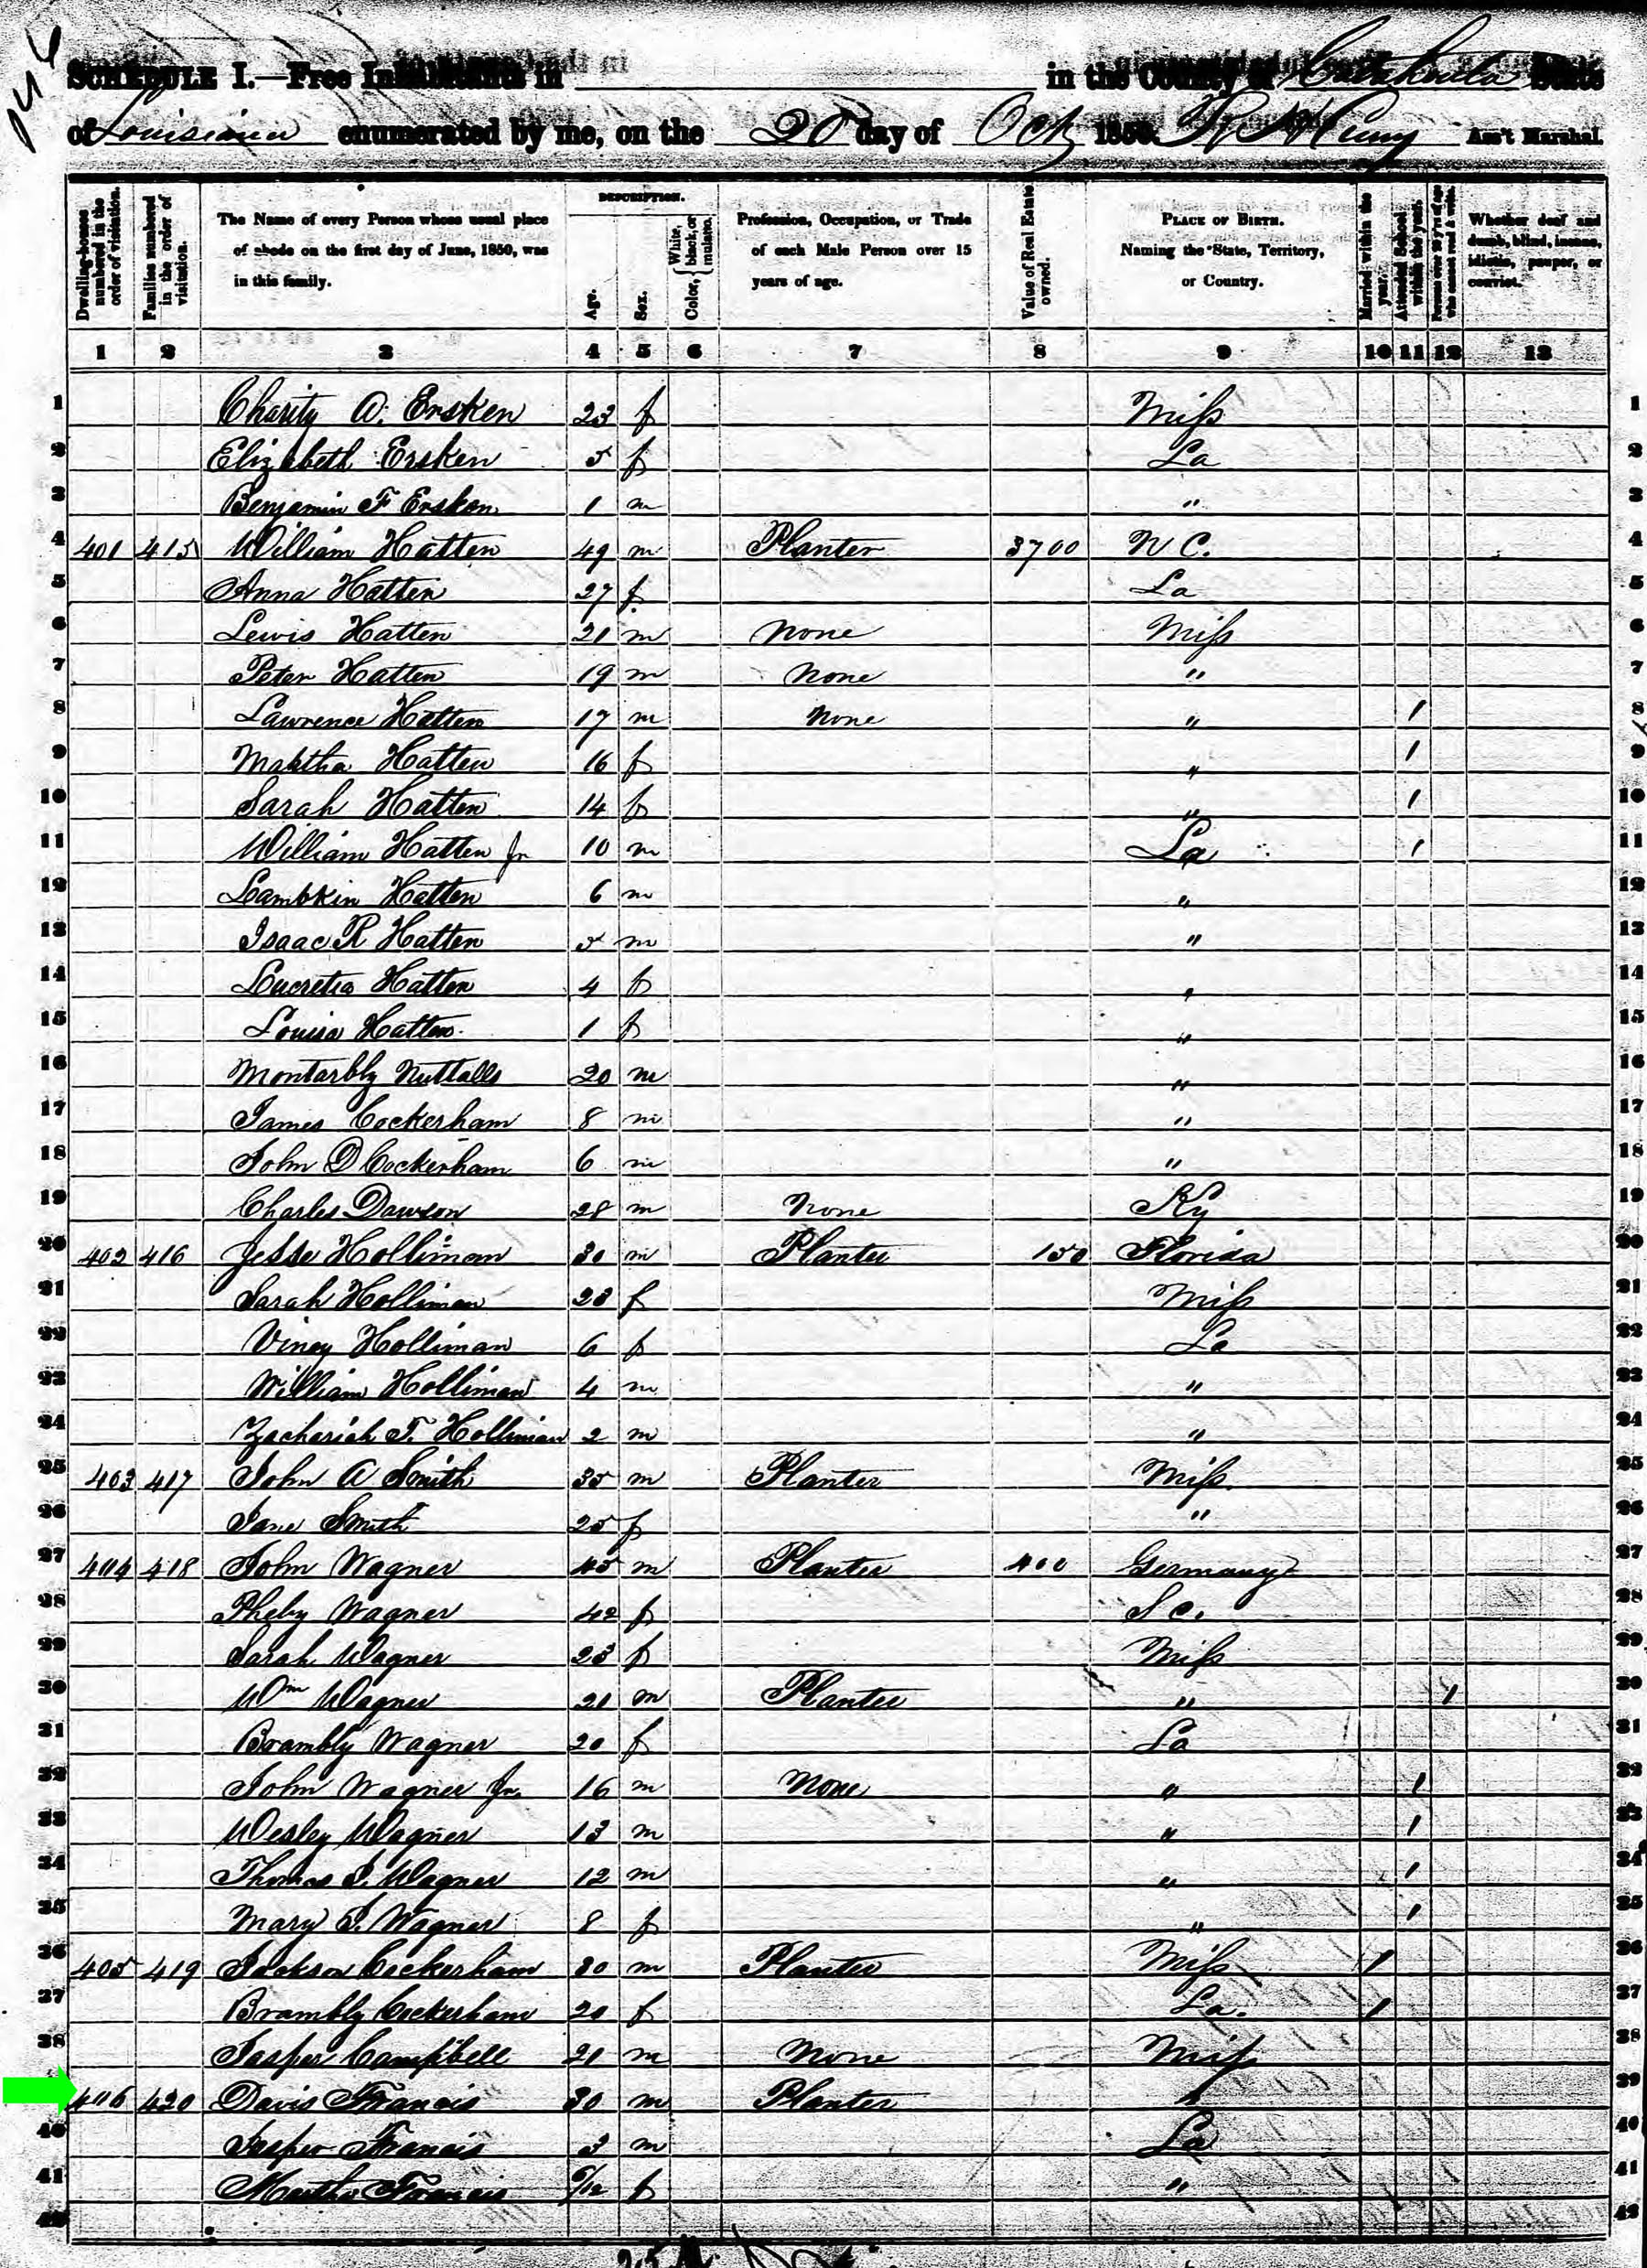 SCHEDULE I.—Free Inhabitants in in the County of Catahoula State
of Louisiana enumerated by me, on the 20 day of Oct 1850. Ass't Marshal.
Dwelling-houses numbered in the order of visitation.
Families numbered in the order of visitation.
The Name of every Person whose usual place of abode on the first day of June, 1850, was in this family.
DESCRIPTION.
Age.
Sex.
Color, { White, black, or mulatto.
Profession, Occupation, or Trade of each Male Person over 15 years of age.
Value of Real Estate owned.
PLACE OF BIRTH. Naming the State, Territory, or Country.
Married within the year.
Attended School within the year.
Persons over 20 y'rs of age who cannot read & write.
Whether deaf and dumb, blind, insane, idiotic, pauper, or convict.
1 2 3 4 5 6 7 8 9 10 11 12 13
1 Charity A. Ersken 23 f Miss 1
2 Elizabeth Ersken 5 f La 2
3 Benjamin F Ersken 1 m " 3
4 401 415 William Hatten 49 m Planter 3700 N C. 4
5 Anna Hatten 27 f La 5
6 Lewis Hatten 21 m None Miss 6
7 Peter Hatten 19 m None " 7
8 Lawrence Hatten 17 m None " 1 8
9 Martha Hatten 16 f " 1 9
10 Sarah Hatten 14 f " 1 10
11 William Hatten Jr 10 m La 1 11
12 Lambkin Hatten 6 m " 12
13 Isaac R Hatten 5 m " 13
14 Lucretia Hatten 4 f " 14
15 Louisa Hatten 1 f " 15
16 Montarbly Nuttalls 20 m " 16
17 James Cockerham 8 m " 17
18 John D Cockerham 6 m " 18
19 Charles Dawson 28 m None Ky 19
20 402 416 Jesse Holliman 30 m Planter 150 Florida 20
21 Sarah Holliman 23 f Miss 21
22 Viney Holliman 6 f La 22
23 William Holliman 4 m " 23
24 Zachariah T. Holliman 2 m " 24
25 403 417 John A Smith 35 m Planter Miss. 25
26 Jane Smith 25 f " 26
27 404 418 John Wagner 45 m Planter 400 Germany 27
28 Pheby Wagner 42 f S C. 28
29 Sarah Wagner 23 f Miss 29
30 Wm Wagner 21 m Planter " 1 30
31 Brambly Wagner 20 f La 31
32 John Wagner Jr. 16 m None " 1 32
33 Wesley Wagner 13 m " 1 33
34 Thomas J. Wagner 12 m " 1 34
35 Mary J. Wagner 8 f " 1 35
36 405 419 Jackson Cockerham 30 m Planter Miss 1 36
37 Brambly Cockerham 20 f La. 1 37
38 Jasper Campbell 21 m None Miss 38
406 420 Davis Francis 30 m Planter " 39
40 Jasper Francis 3 m La 40
41 Martha Francis 6/12 f " 41
42 42